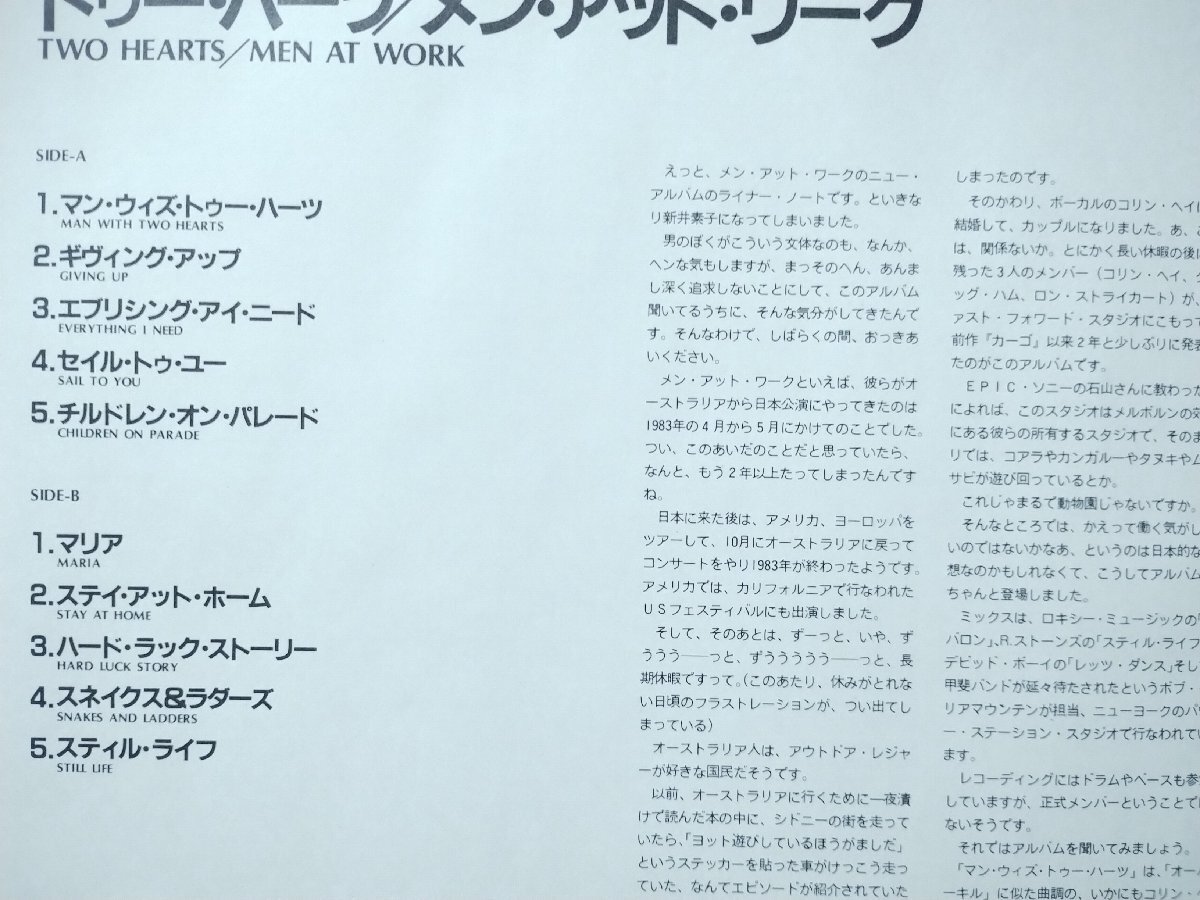 トゥー・ハーツ/メン・アット・ワーク
TWO HEARTS/MEN AT WORK
SIDE-A
1.マン・ウィズ・トゥー・ハーツ
MAN WITH TWO HEARTS
2.ギヴィング・アップ
GIVING UP
3.エブリシング・アイ・ニード
EVERYTHING I NEED
4.セイル・トゥ・ユー
SAIL TO YOU
5.チルドレン・オン・パレード
CHILDREN ON PARADE
SIDE-B
1.マリア
MARIA
2.ステイ・アット・ホーム
STAY AT HOME
3.ハード・ラック・ストーリー
HARD LUCK STORY
4.スネイクス&ラダーズ
SNAKES AND LADDERS
5.スティル・ライフ
STILL LIFE
えっと、メン・アット・ワークのニュー・
アルバムのライナー・ノートです。といきな
り新井素子になってしまいました。
男のぼくがこういう文体なのも、なんか、
ヘンな気もしますが、まっそのへん、あんま
し深く追求しないことにして、このアルバム
聞いてるうちに、そんな気分がしてきたんで
す。そんなわけで、しばらくの間、おっきあ
いください。
メン・アット・ワークといえば、彼らがオ
ーストラリアから日本公演にやってきたのは
1983年の4月から5月にかけてのことでした。
つい、このあいだのことだと思っていたら、
なんと、もう2年以上たってしまったんです
ね。
日本に来た後は、アメリカ、ヨーロッパを
ツアーして、10月にオーストラリアに戻って
コンサートをやり1983年が終わったようです。
アメリカでは、カリフォルニアで行なわれた
USフェスティバルにも出演しました。
そして、そのあとは、ずーっと、いや、ず
ううう──っと、ずうううう──っと、長
期休暇ですって。(このあたり、休みがとれな
い日頃のフラストレーションが、つい出てし
まっている)
オーストラリア人は、アウトドア・レジャ
ーが好きな国民だそうです。
以前、オーストラリアに行くために一夜漬
けで読んだ本の中に、シドニーの街を走って
いたら、「ヨット遊びしているほうがましだ」
というステッカーを貼った車がけっこう走っ
ていた、なんてエピソードが紹介されていた
しまったのです。
そのかわり、ボーカルのコリン・ヘイ
結婚して、カップルになりました。あ、
は、関係ないか。とにかく長い休暇の後
残った3人のメンバー(コリン・ヘイ、
ッグ・ハム、ロン・ストライカート)が、
ァスト・フォワード・スタジオにこもって
前作『カーゴ』以来2年と少しぶりに発表
たのがこのアルバムです。
EPIC・ソニーの石山さんに教わった
によれば、このスタジオはメルボルンの
にある彼らの所有するスタジオで、そのま
リでは、コアラやカンガルーやタヌキや
サビが遊び回っているとか。
これじゃまるで動物園じゃないですか。
そんなところでは、かえって働く気がし
いのではないかなあ、というのは日本的な
想なのかもしれなくて、こうしてアルバム
ちゃんと登場しました。
ミックスは、ロキシー・ミュージックの「
バロン」、R.ストーンズの「スティル・ライフ
デビッド・ボーイの「レッツ・ダンス」そし
甲斐バンドが延々待たされたというボブ・
リアマウンテンが担当、ニューヨークのパ
ー・ステーション・スタジオで行なわれてい
ます。
レコーディングにはドラムやベースも参
していますが、正式メンバーということで
ないそうです。
それではアルバムを聞いてみましょう。
「マン・ウィズ・トゥー・ハーツ」は、「オー
ーキル」に似た曲調の、いかにもコリン・